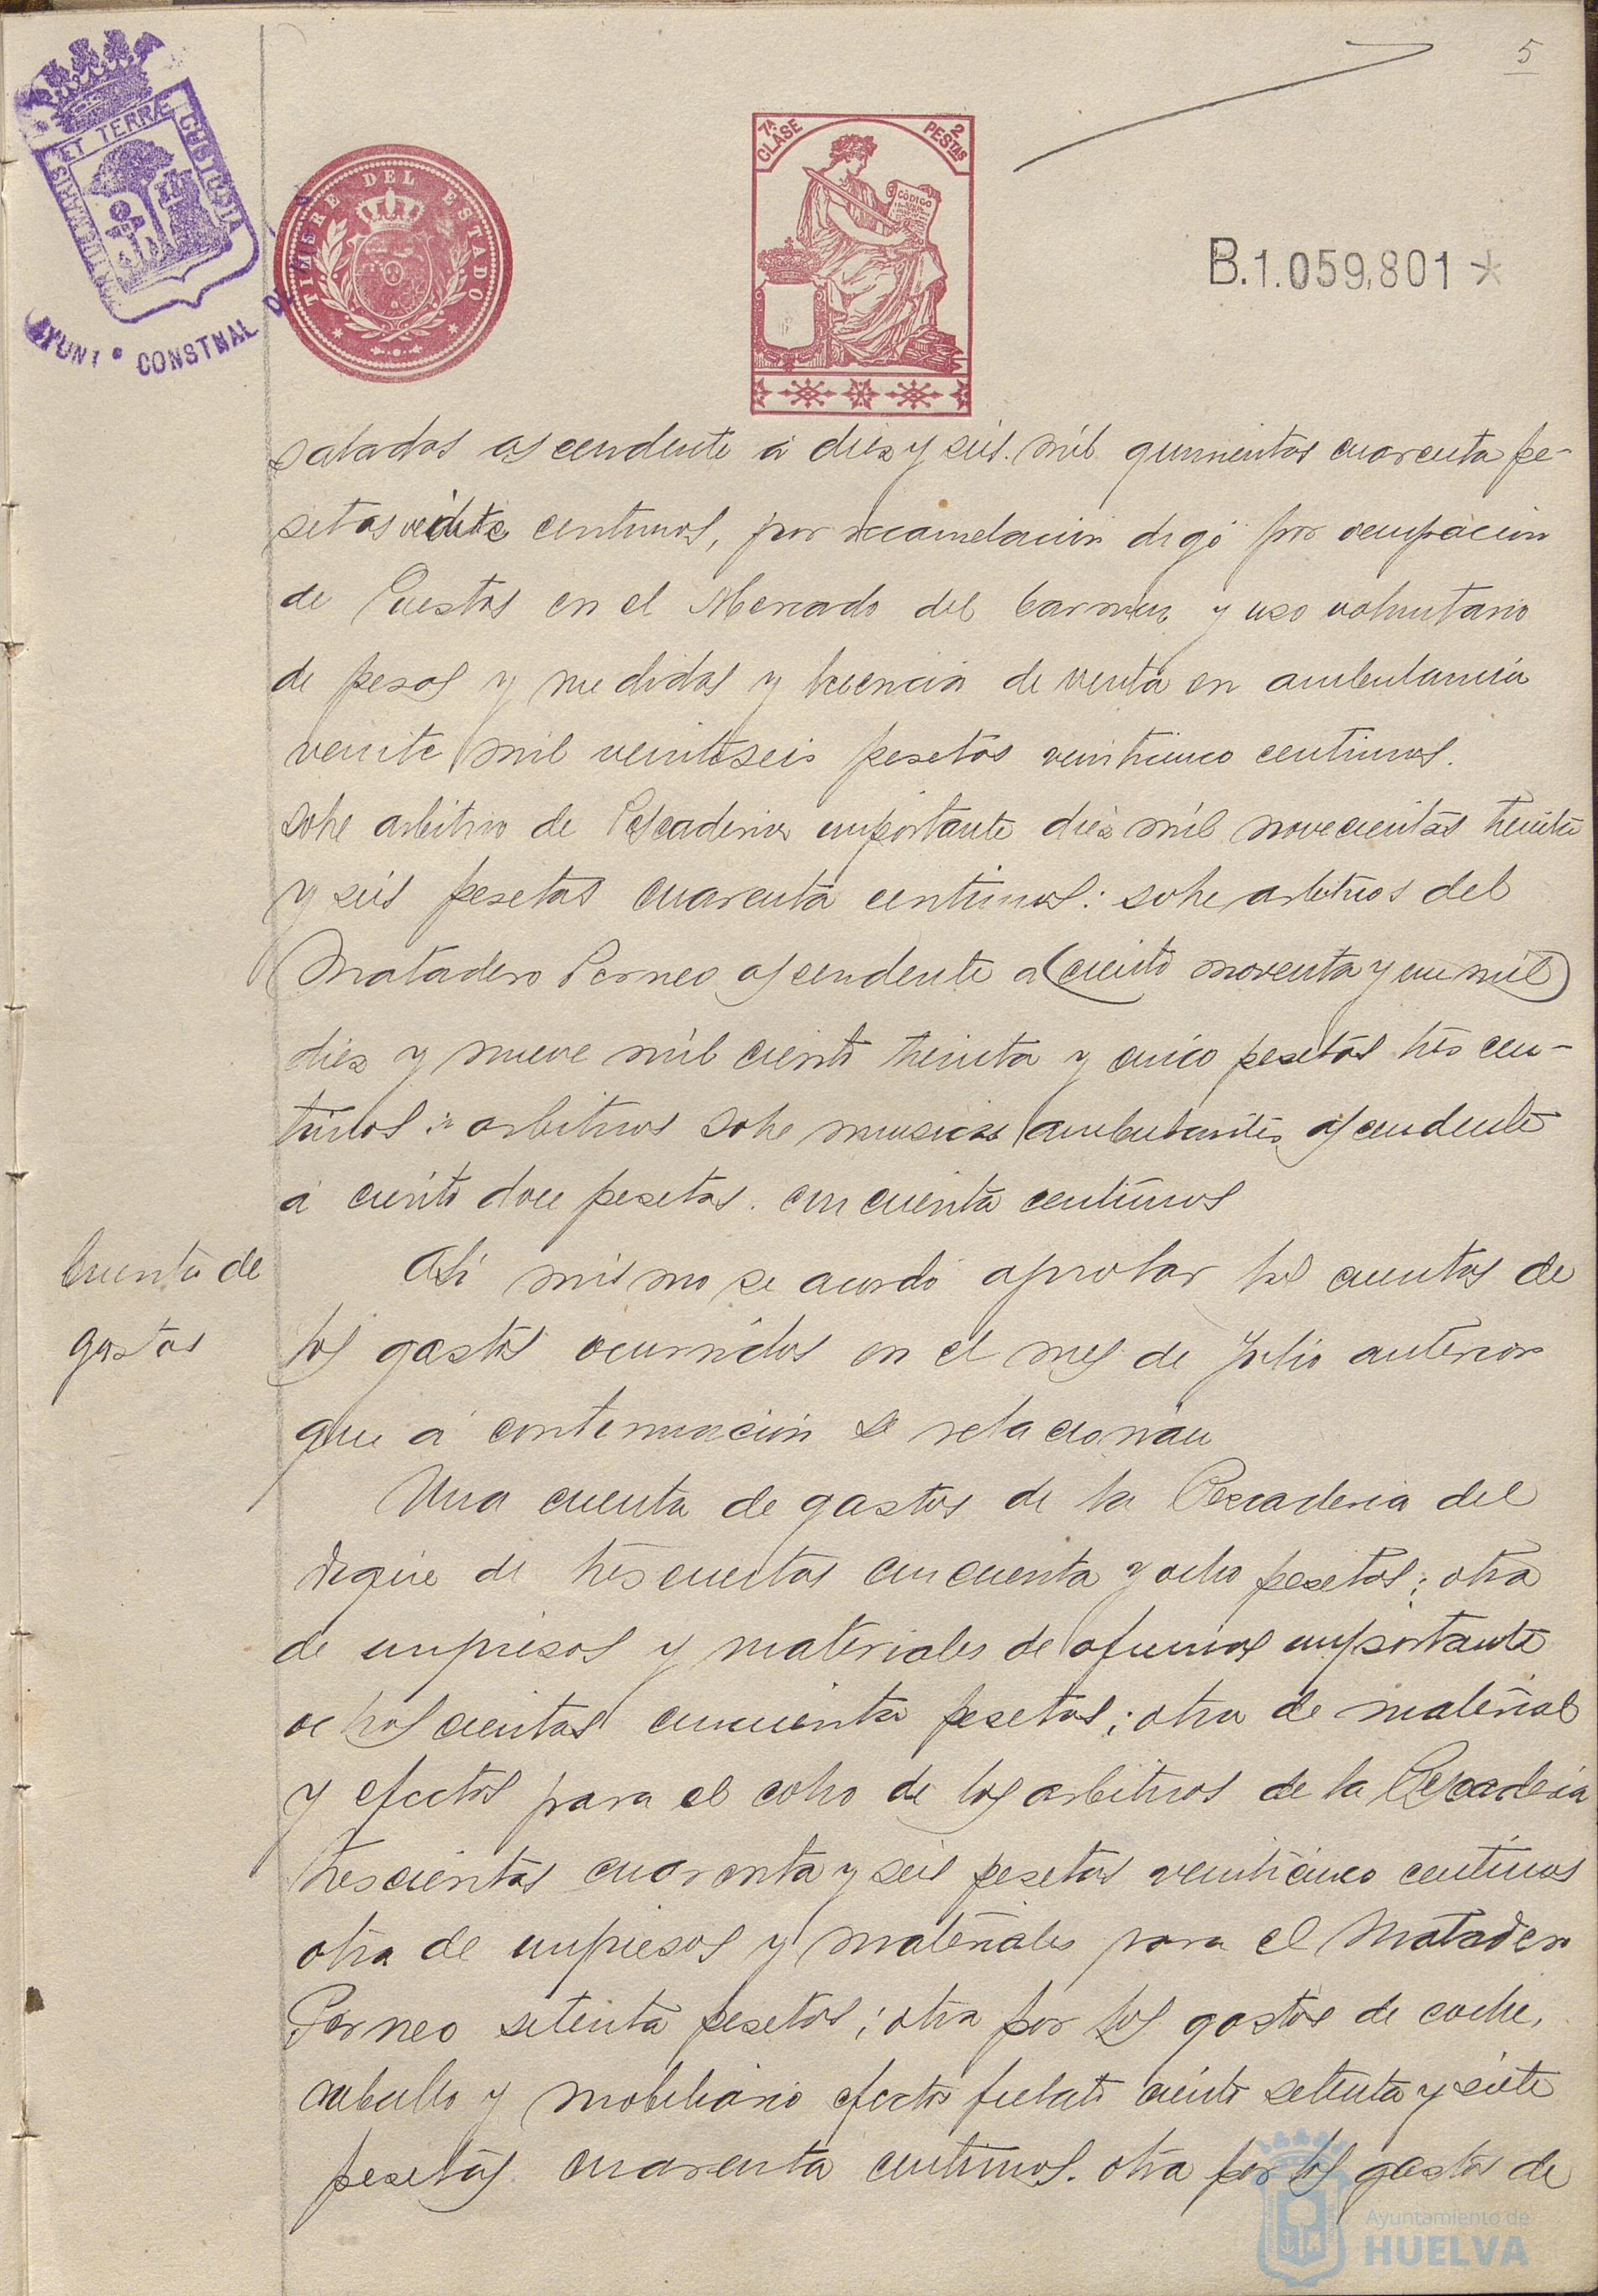 5
PORTUS MARIS ET TERRÆ CUSTODIA
AYUNT° CONSTNAL DE
TIMBRE DEL ESTADO
7ª CLASE
2 PESTAS
CÓDIGO
B.1.059,801*
salados ascendente á diez y seis mil quinientas cuarenta pe-
setas veinte centimos, por recaudacion digo por ocupacion
de Puestos en el Mercado del Carmen y uso voluntario
de pesas y medidas y licencia de venta en ambulancia
veinte mil veintiseis pesetas veinticinco centimos.
sobre arbitrio de Pescaderia importante diez mil novecientas treinta
y seis pesetas cuarenta centimos: sobre arbitrios del
Matadero Porneo ascendente a (ciento noventa y un mil)
diez y nueve mil ciento treinta y cinco pesetas tres cen-
timos: arbitrios sobre musicas ambulantes ascendente
á ciento doce pesetas cincuenta centimos
Cuenta de
gastos
Asi mismo se acordó aprobar las cuentas de
los gastos ocurridos en el mes de Julio anterior
que á continuacion se relacionan
Una cuenta de gastos de la Pescaderia del
dique de trescientas cincuenta y ocho pesetas; otra
de impresos y materiales de oficinas importante
ochocientas cincuenta pesetas; otra de material
y efectos para el cobro de los arbitrios de la Pescaderia
trescientas cuarenta y seis pesetas veinticinco centimos
otra de impresos y materiales para el Matadero
Porneo setenta pesetas; otra por los gastos de coche,
caballo y mobiliario efectos fielato ciento setenta y siete
pesetas cuarenta centimos. otra por los gastos de
Ayuntamiento de
HUELVA